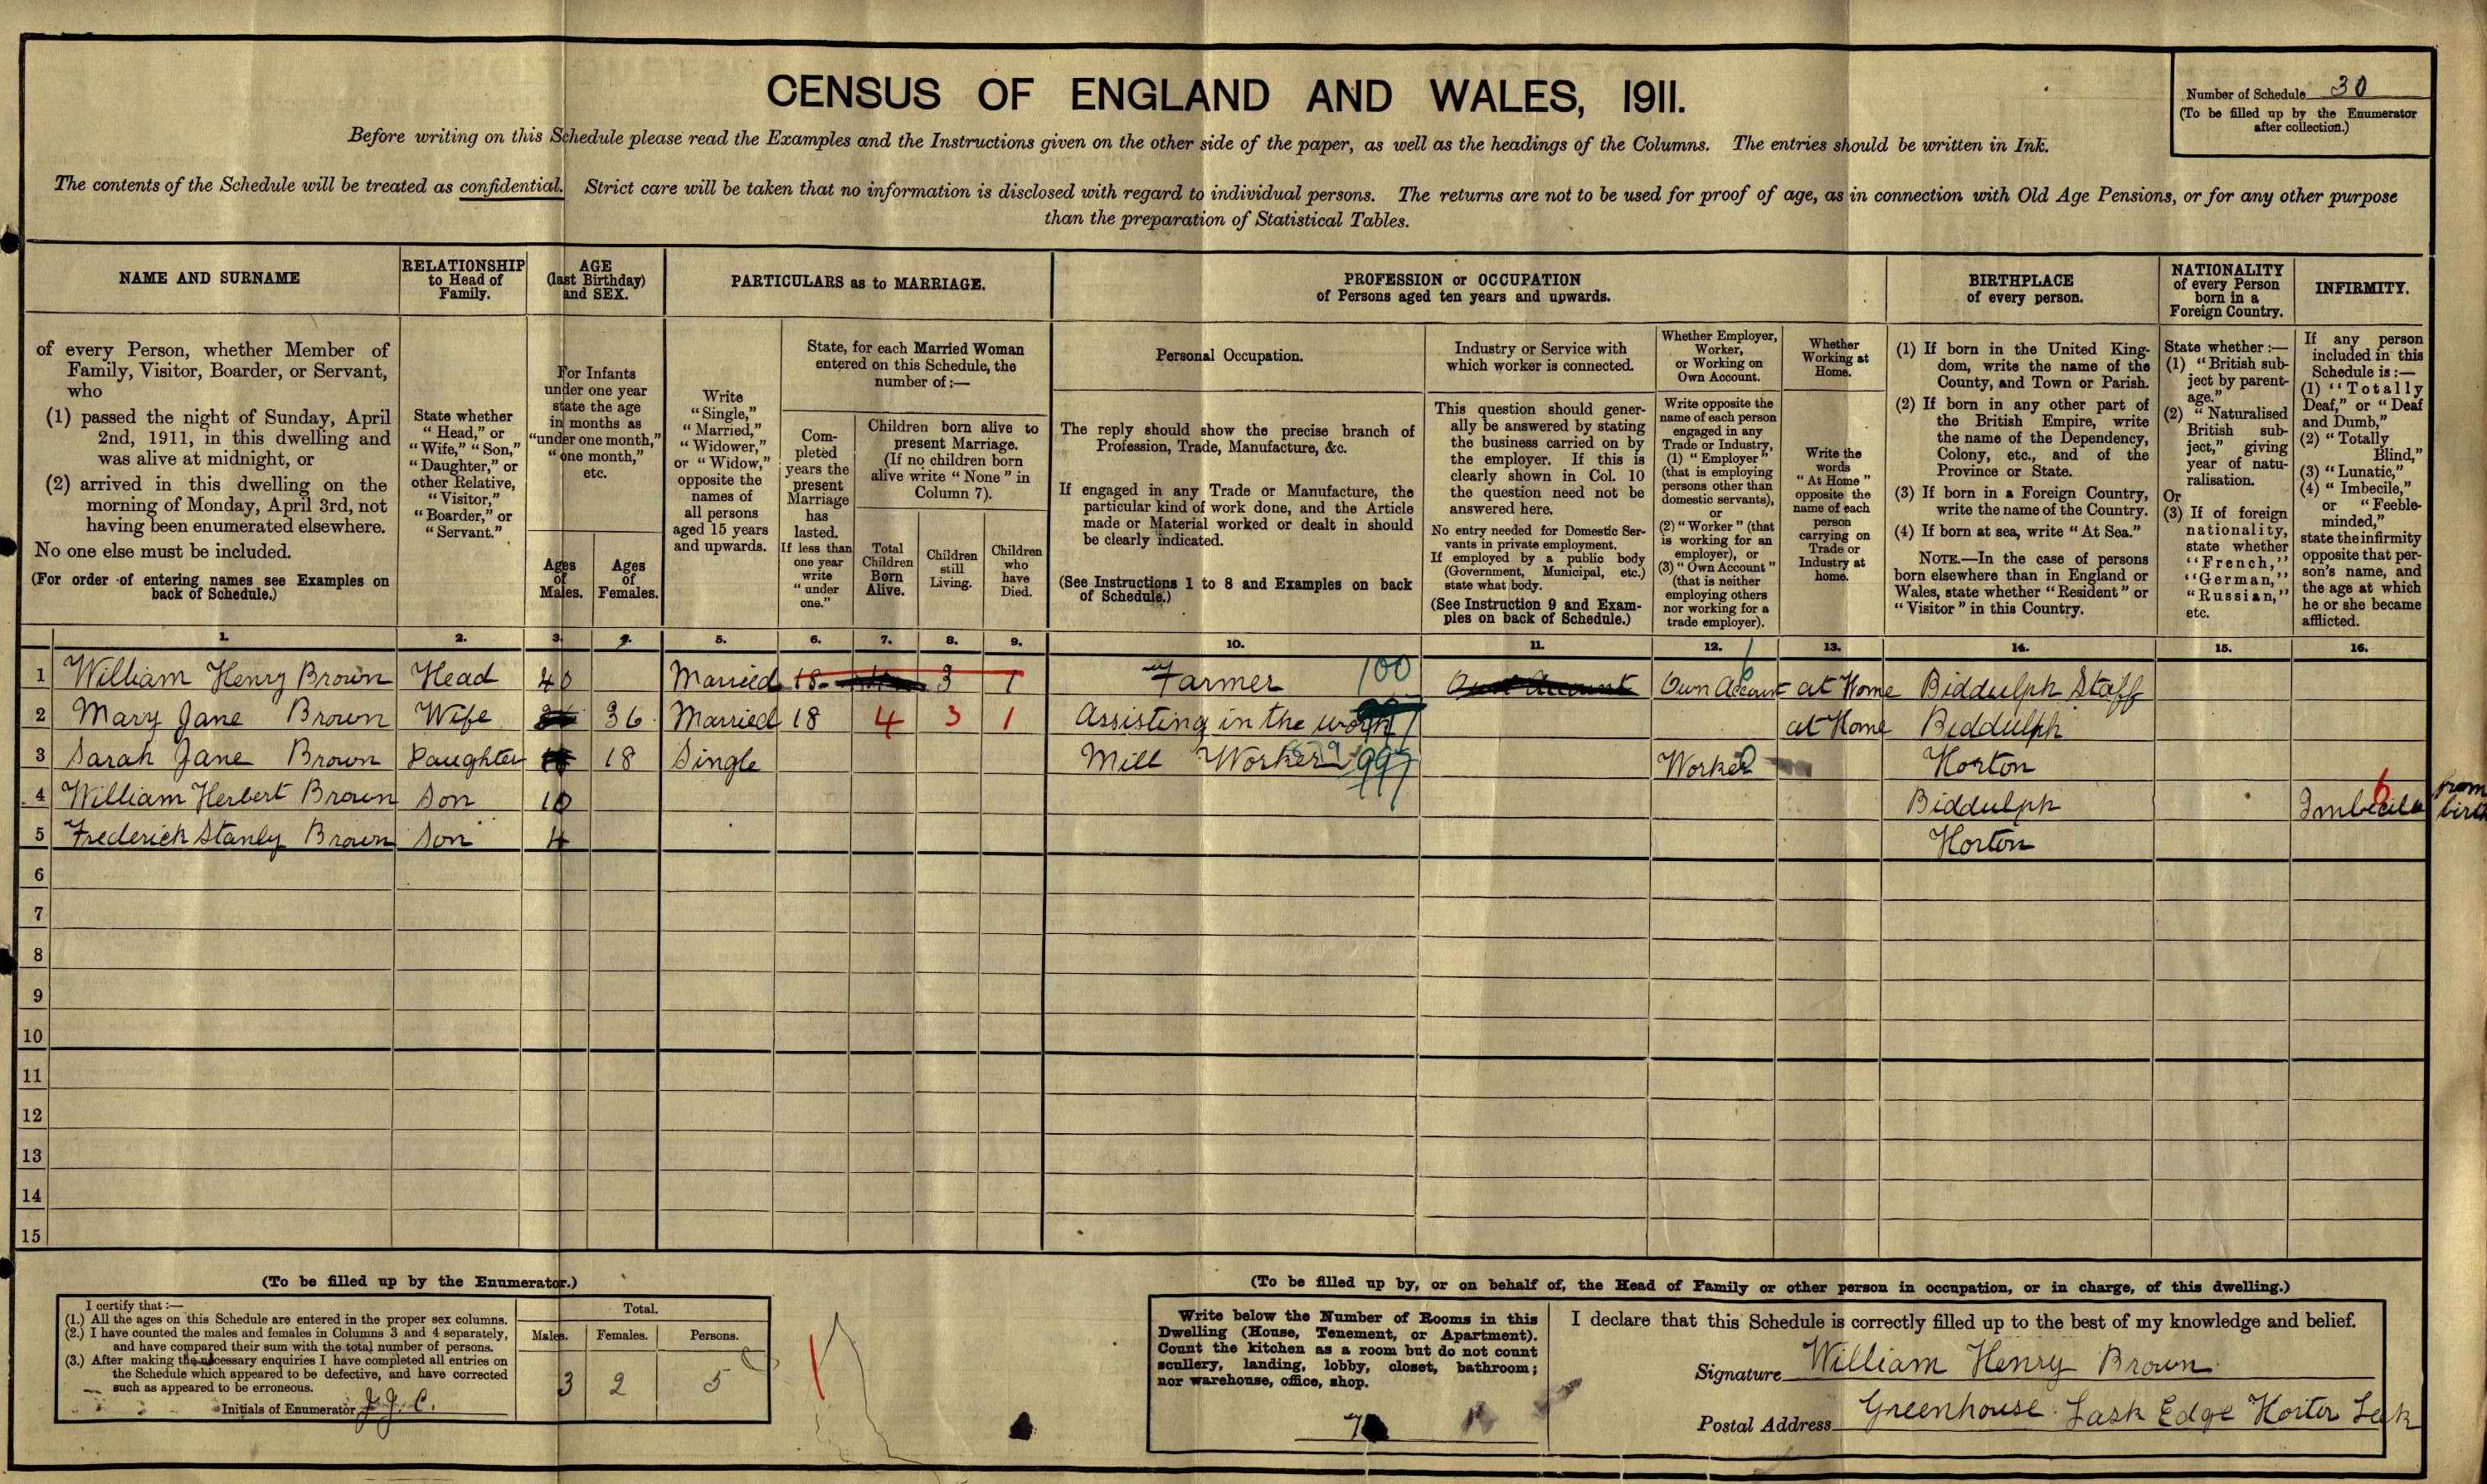 CENSUS OF ENGLAND AND WALES, 1911.
Number of Schedule 30
(To be filled up by the Enumerator
after collection.)
Before writing on this Schedule please read the Examples and the Instructions given on the other side of the paper, as well as the headings of the Columns. The entries should be written in Ink.
The contents of the Schedule will be treated as confidential. Strict care will be taken that no information is disclosed with regard to individual persons. The returns are not to be used for proof of age, as in connection with Old Age Pensions, or for any other purpose
than the preparation of Statistical Tables.
NAME AND SURNAME
of every Person, whether Member of
Family, Visitor, Boarder, or Servant,
who
(1) passed the night of Sunday, April
2nd, 1911, in this dwelling and
was alive at midnight, or
(2) arrived in this dwelling on the
morning of Monday, April 3rd, not
having been enumerated elsewhere.
No one else must be included.
(For order of entering names see Examples on
back of Schedule.)
RELATIONSHIP
to Head of
Family.
State whether
"Head," or
"Wife," "Son,"
"Daughter," or
other Relative,
"Visitor,"
"Boarder," or
"Servant."
AGE
(last Birthday)
and SEX.
For Infants
under one year
state the age
in months as
"under one month,"
"one month,"
etc.
Ages
of
Males.
Ages
of
Females.
PARTICULARS as to MARRIAGE.
Write
"Single,"
"Married,"
"Widower,"
or "Widow,"
opposite the
names of
all persons
aged 15 years
and upwards.
State, for each Married Woman
entered on this Schedule, the
number of:—
Com-
pleted
years the
present
Marriage
has
lasted.
If less than
one year
write
"under
one."
Children born alive to
present Marriage.
(If no children born
alive write "None" in
Column 7).
Total
Children
Born
Alive.
Children
still
Living.
Children
who
have
Died.
PROFESSION or OCCUPATION
of Persons aged ten years and upwards.
Personal Occupation.
The reply should show the precise branch of
Profession, Trade, Manufacture, &c.
If engaged in any Trade or Manufacture, the
particular kind of work done, and the Article
made or Material worked or dealt in should
be clearly indicated.
(See Instructions 1 to 8 and Examples on back
of Schedule.)
Industry or Service with
which worker is connected.
This question should gener-
ally be answered by stating
the business carried on by
the employer. If this is
clearly shown in Col. 10
the question need not be
answered here.
No entry needed for Domestic Ser-
vants in private employment.
If employed by a public body
(Government, Municipal, etc.)
state what body.
(See Instruction 9 and Exam-
ples on back of Schedule.)
Whether Employer,
Worker,
or Working on
Own Account.
Write opposite the
name of each person
engaged in any
Trade or Industry,
(1) "Employer"
(that is employing
persons other than
domestic servants),
or
(2) "Worker" (that
is working for an
employer), or
(3) "Own Account"
(that is neither
employing others
nor working for a
trade employer).
Whether
Working at
Home.
Write the
words
"At Home"
opposite the
name of each
person
carrying on
Trade or
Industry at
home.
BIRTHPLACE
of every person.
(1) If born in the United King-
dom, write the name of the
County, and Town or Parish.
(2) If born in any other part of
the British Empire, write
the name of the Dependency,
Colony, etc., and of the
Province or State.
(3) If born in a Foreign Country,
write the name of the Country.
(4) If born at sea, write "At Sea."
NOTE.—In the case of persons
born elsewhere than in England or
Wales, state whether "Resident" or
"Visitor" in this Country.
NATIONALITY
of every Person
born in a
Foreign Country.
State whether:—
(1) "British sub-
ject by parent-
age."
(2) "Naturalised
British sub-
ject," giving
year of natu-
ralisation.
Or
(3) If of foreign
nationality,
state whether
"French,"
"German,"
"Russian,"
etc.
INFIRMITY.
If any person
included in this
Schedule is:—
(1) "Totally
Deaf," or "Deaf
and Dumb,"
(2) "Totally
Blind,"
(3) "Lunatic,"
(4) "Imbecile,"
or "Feeble-
minded,"
state the infirmity
opposite that per-
son's name, and
the age at which
he or she became
afflicted.
1. 2. 3. 4. 5. 6. 7. 8. 9. 10. 11. 12. 13. 14. 15. 16.
1 William Henry Brown Head 40 Married 18 3 1 Farmer 100 Own Account at Home Biddulph Staff
2 Mary Jane Brown Wife 36 Married 18 4 3 1 Assisting in the work at Home Biddulph
3 Sarah Jane Brown Daughter 18 Single Mill Worker 997 Worker Horton
4 William Herbert Brown Son 10 Biddulph Imbecile from birth
5 Frederick Stanley Brown Son 4 Horton
6
7
8
9
10
11
12
13
14
15
(To be filled up by the Enumerator.)
I certify that:—
(1.) All the ages on this Schedule are entered in the proper sex columns.
(2.) I have counted the males and females in Columns 3 and 4 separately,
and have compared their sum with the total number of persons.
(3.) After making the necessary enquiries I have completed all entries on
the Schedule which appeared to be defective, and have corrected
such as appeared to be erroneous.
Initials of Enumerator J. J. C.
Total.
Males. Females. Persons.
3 2 5
(To be filled up by, or on behalf of, the Head of Family or other person in occupation, or in charge, of this dwelling.)
Write below the Number of Rooms in this
Dwelling (House, Tenement, or Apartment).
Count the kitchen as a room but do not count
scullery, landing, lobby, closet, bathroom;
nor warehouse, office, shop.
7
I declare that this Schedule is correctly filled up to the best of my knowledge and belief.
Signature William Henry Brown
Postal Address Greenhouse Lask Edge Horton Leek